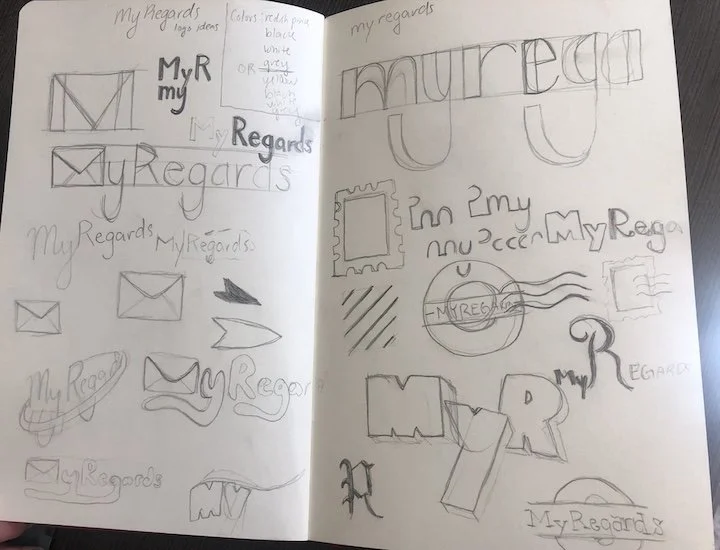 My Regards
logo ideas
Colors:
black
white
OR grey
yellow
black
white
MyR
my
My Regards
M
MyRegards
MyRegards
MyRegards
My Regard
MyRegar
MyRegards
MY
my regards
myrega
my
MyRega
-MYREGARDS
My REGARDS
MYR
R
MyRegards